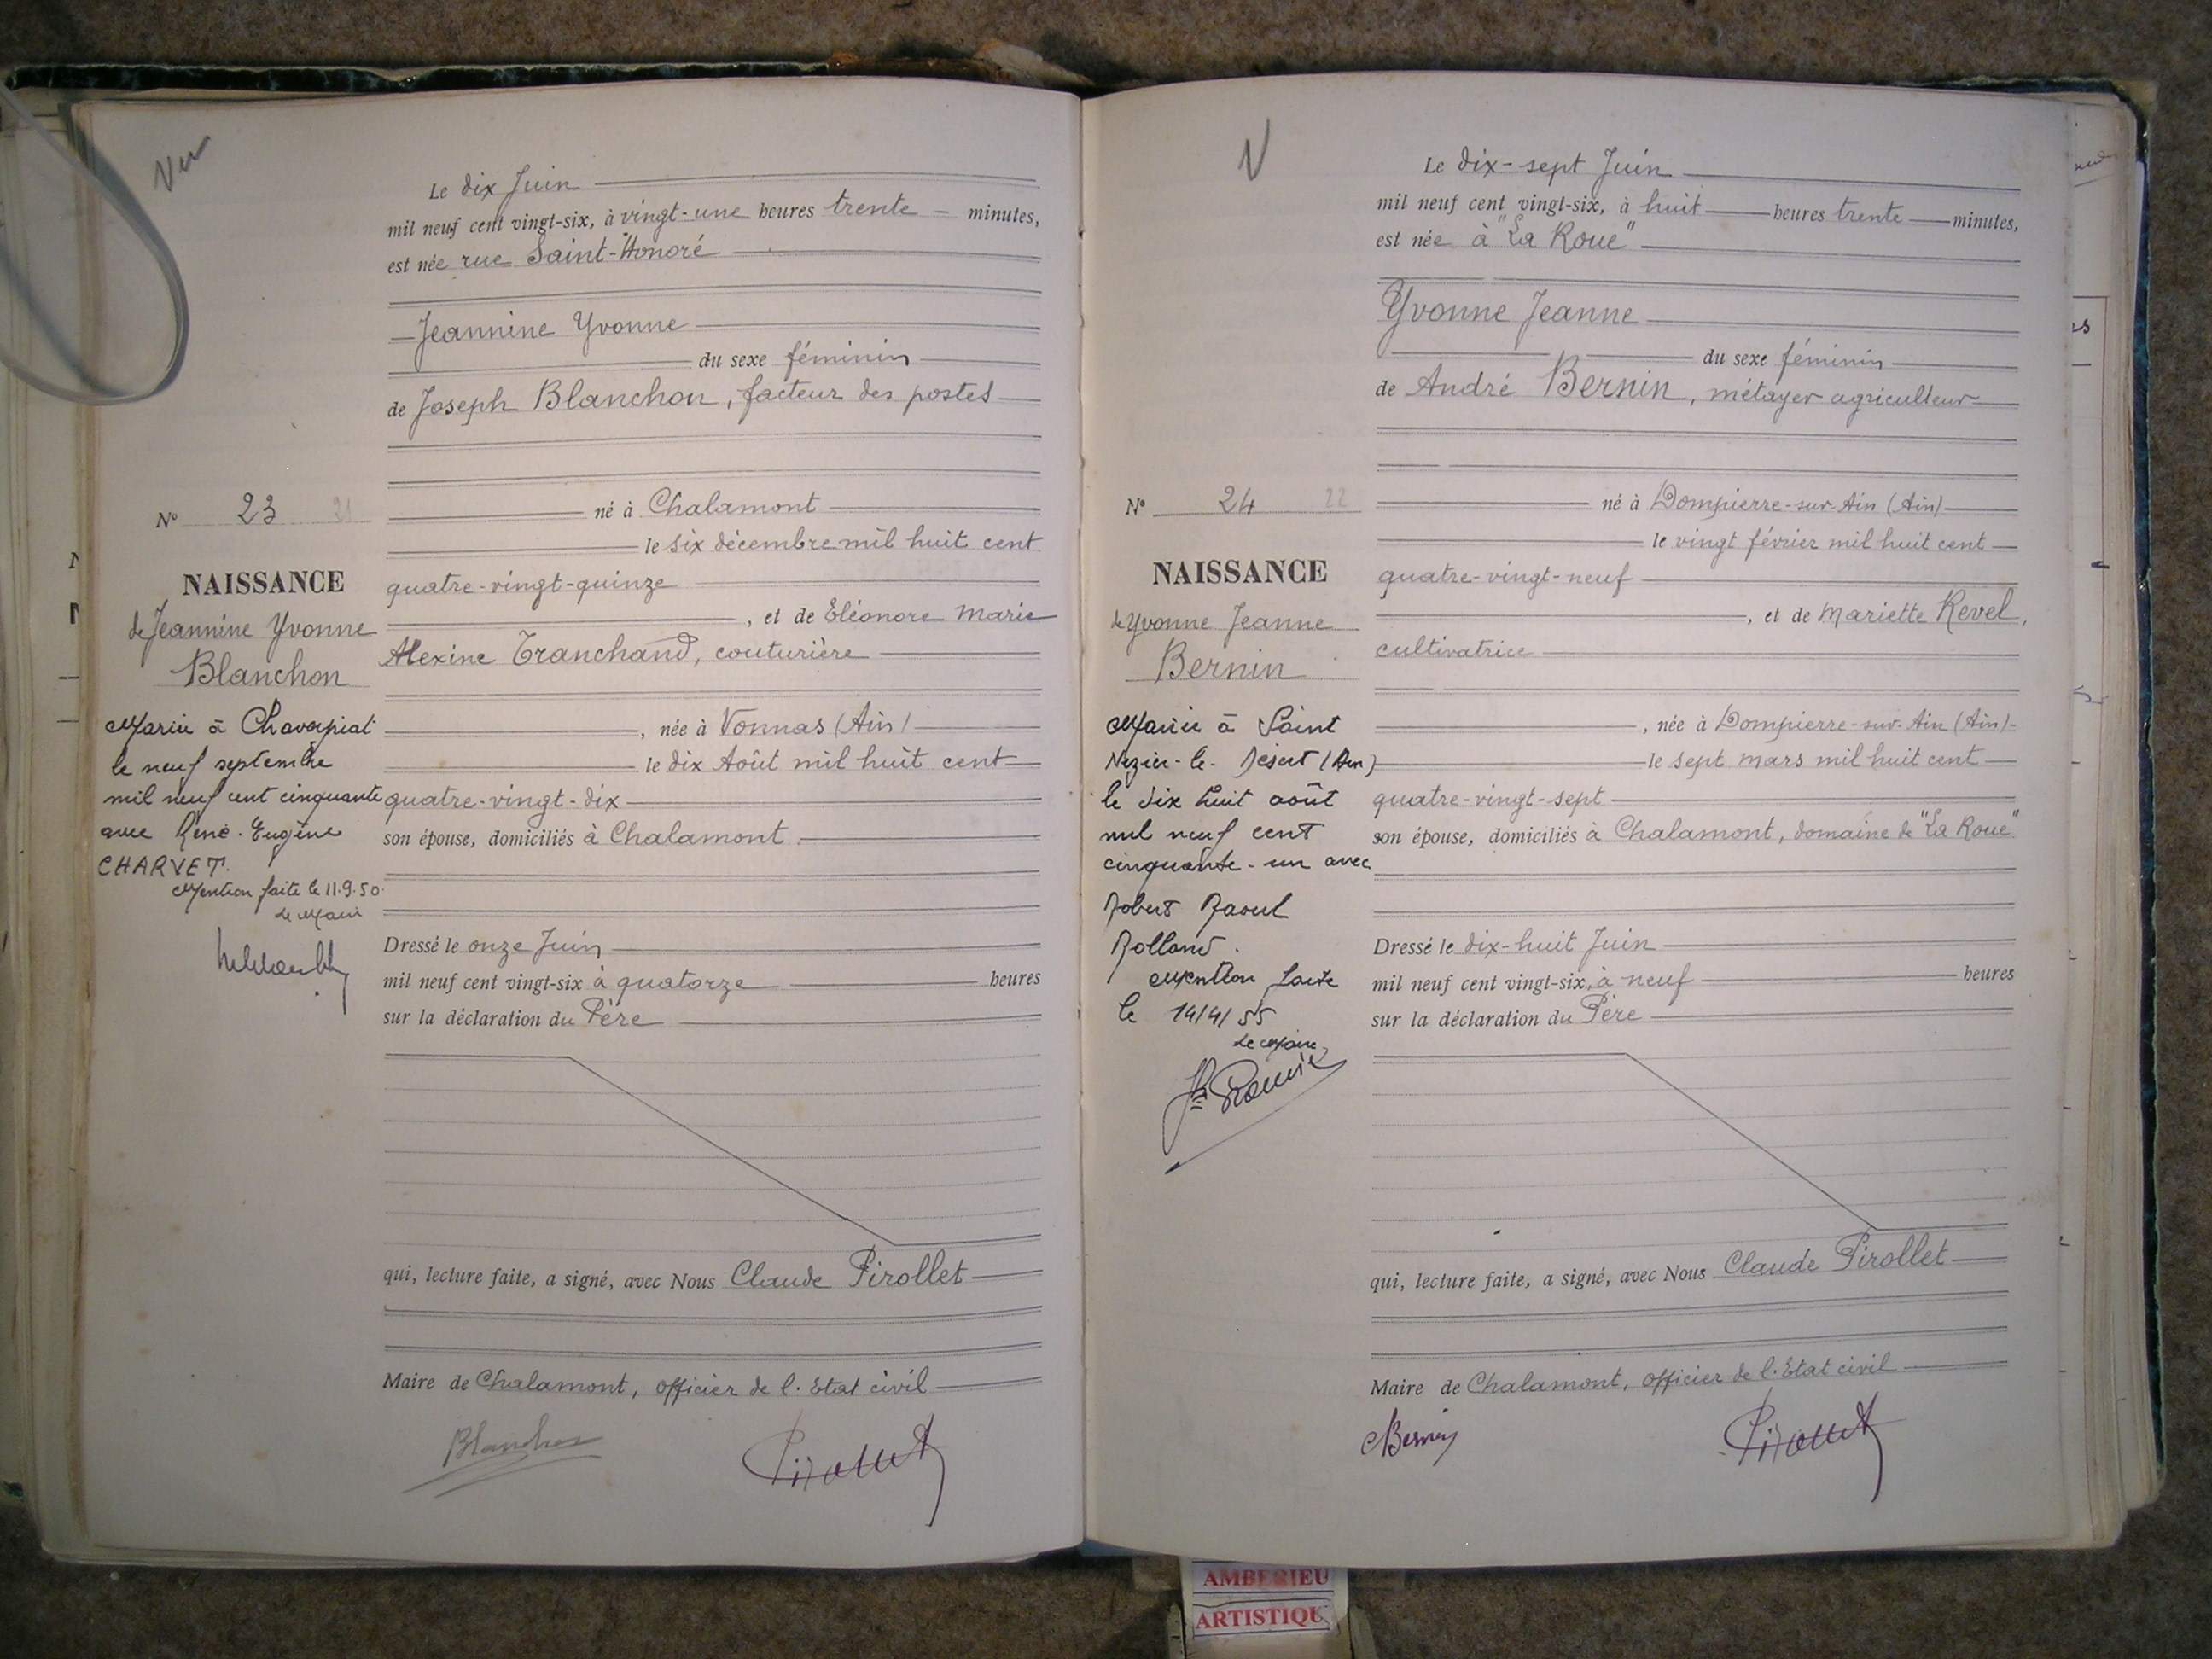 Vu
Le dix Juin
mil neuf cent vingt-six, à vingt-une heures trente minutes,
est née rue Saint-Honoré
Jeannine Yvonne
du sexe féminin
de Joseph Blanchon, facteur des postes
né à Chalamont
le six décembre mil huit cent
quatre-vingt-quinze
, et de Eléonore Marie
Alexine Tranchand, couturière
, née à Vonnas (Ain)
le dix Août mil huit cent
quatre-vingt-dix
son épouse, domiciliés à Chalamont
Dressé le onze Juin
mil neuf cent vingt-six à quatorze heures
sur la déclaration du Père
qui, lecture faite, a signé, avec Nous Claude Pirollet
Maire de Chalamont, officier de l'Etat civil
Blanchon
Pirollet
N° 23 21
NAISSANCE
de Jeannine Yvonne
Blanchon
Mariée à
le neuf septembre
mil neuf cent cinquante
avec René-Eugène
CHARVET.
Mention faite le 11.9.50.
Le Maire
V
Le dix-sept Juin
mil neuf cent vingt-six, à huit heures trente minutes,
est née à "La Roue"
Yvonne Jeanne
du sexe féminin
de André Bernin, métayer agriculteur
né à Dompierre-sur-Ain (Ain)
le vingt février mil huit cent
quatre-vingt-neuf
, et de Mariette Revel,
cultivatrice
, née à Dompierre-sur-Ain (Ain)
le sept mars mil huit cent
quatre-vingt-sept
son épouse, domiciliés à Chalamont, domaine de "La Roue"
Dressé le dix-huit Juin
mil neuf cent vingt-six, à neuf heures
sur la déclaration du Père
qui, lecture faite, a signé, avec Nous Claude Pirollet
Maire de Chalamont, officier de l'Etat civil
Bernin
Pirollet
N° 24 22
NAISSANCE
de Yvonne Jeanne
Bernin
Mariée à Saint
Nizier-le-Désert (Ain)
le dix huit août
mil neuf cent
cinquante-un avec
Robert Raoul
Rolland.
Mention faite
le 14/4/55
Le Maire,
AMBERIEU
ARTISTIQU